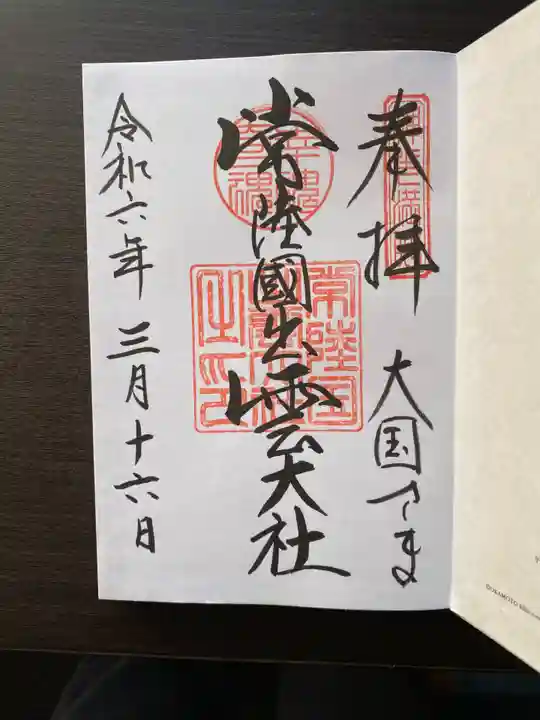 奉拝
大国さま
常陸國出雲大社
常陸国
令和六年三月十六日